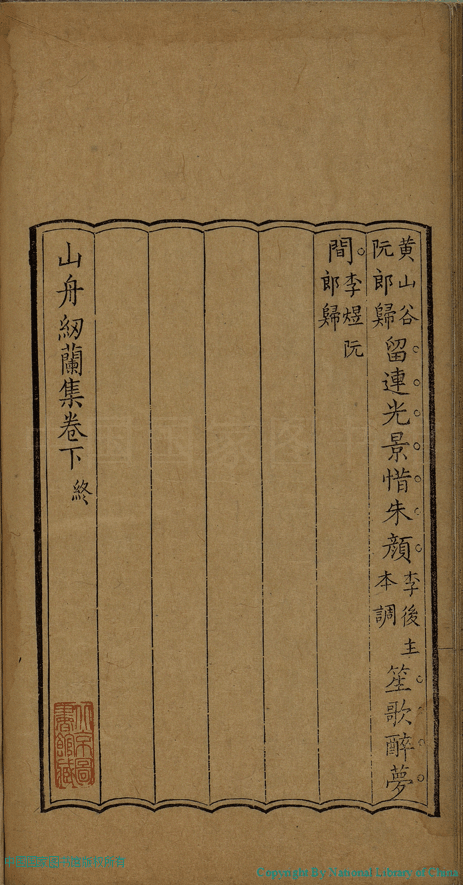 黄山谷阮郎歸留連光景惜朱顔李後主本調笙歌醉夢
間李煜阮郎歸
山舟紉蘭集卷下終
北京圖書館藏
中国国家图书馆
Copyright By National Library of China